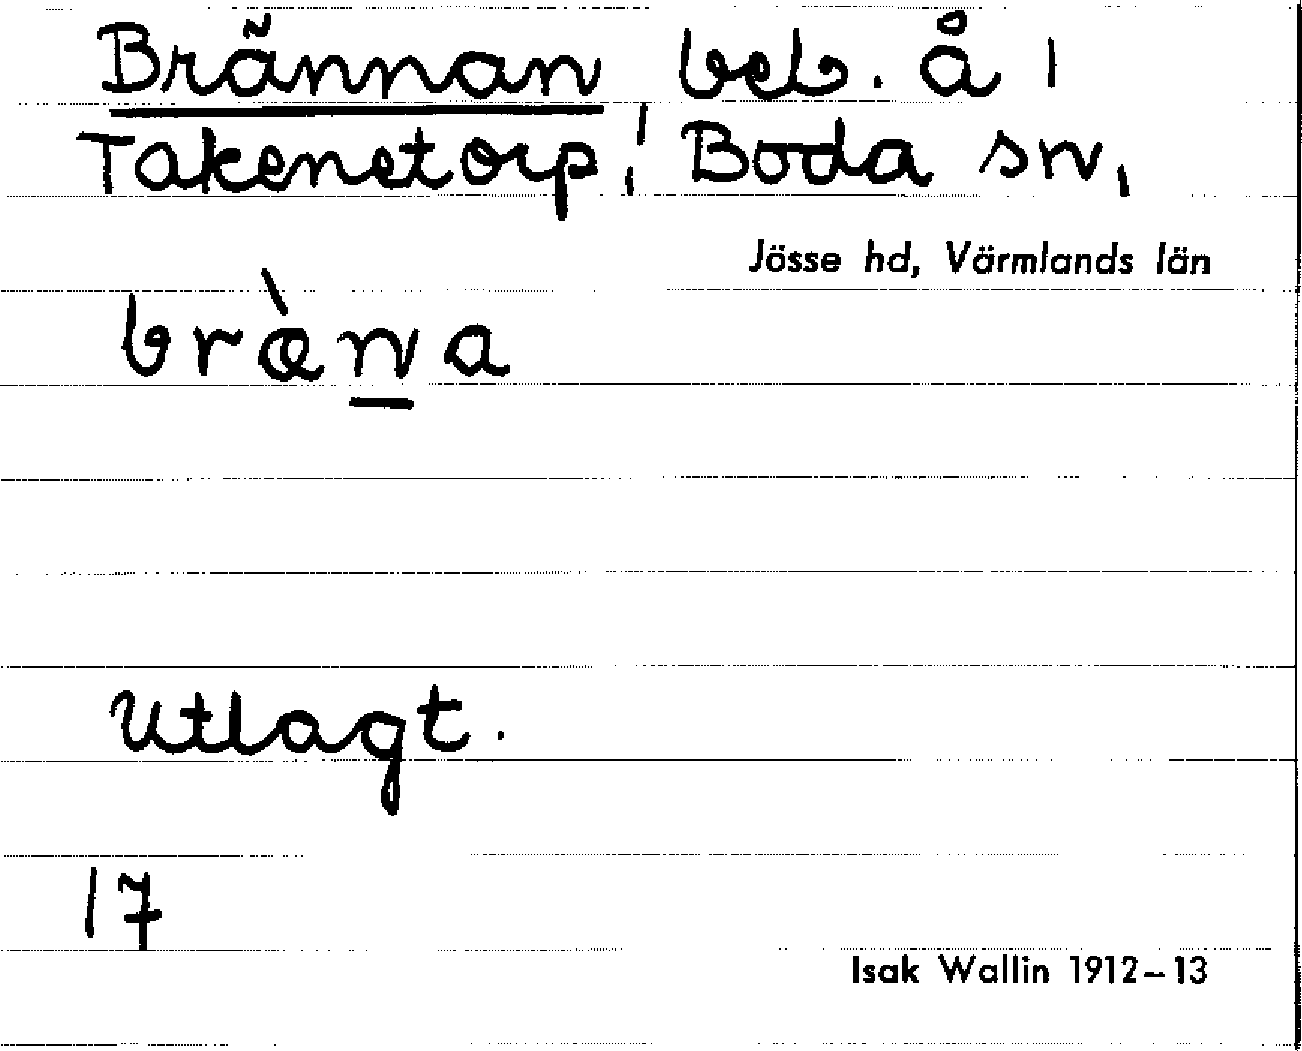 Brännan beb. å 1
Takenetorp, Boda sn,
Jösse hd, Värmlands län
bræ̀n̲a
Utlagt.
17
Isak Wallin 1912–13